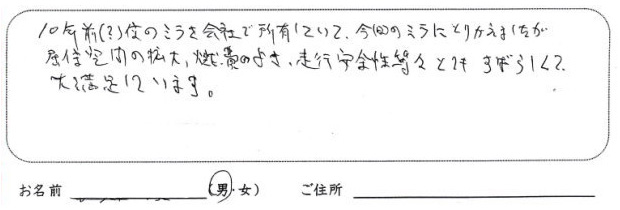 10年前(?)位のミラを会社で所有していて、今回のミラにとりかえましたが
居住空間の拡大、燃費のよさ、走行安全性等々とても すばらしくて
大満足しています。
お名前 (男・女) ご住所